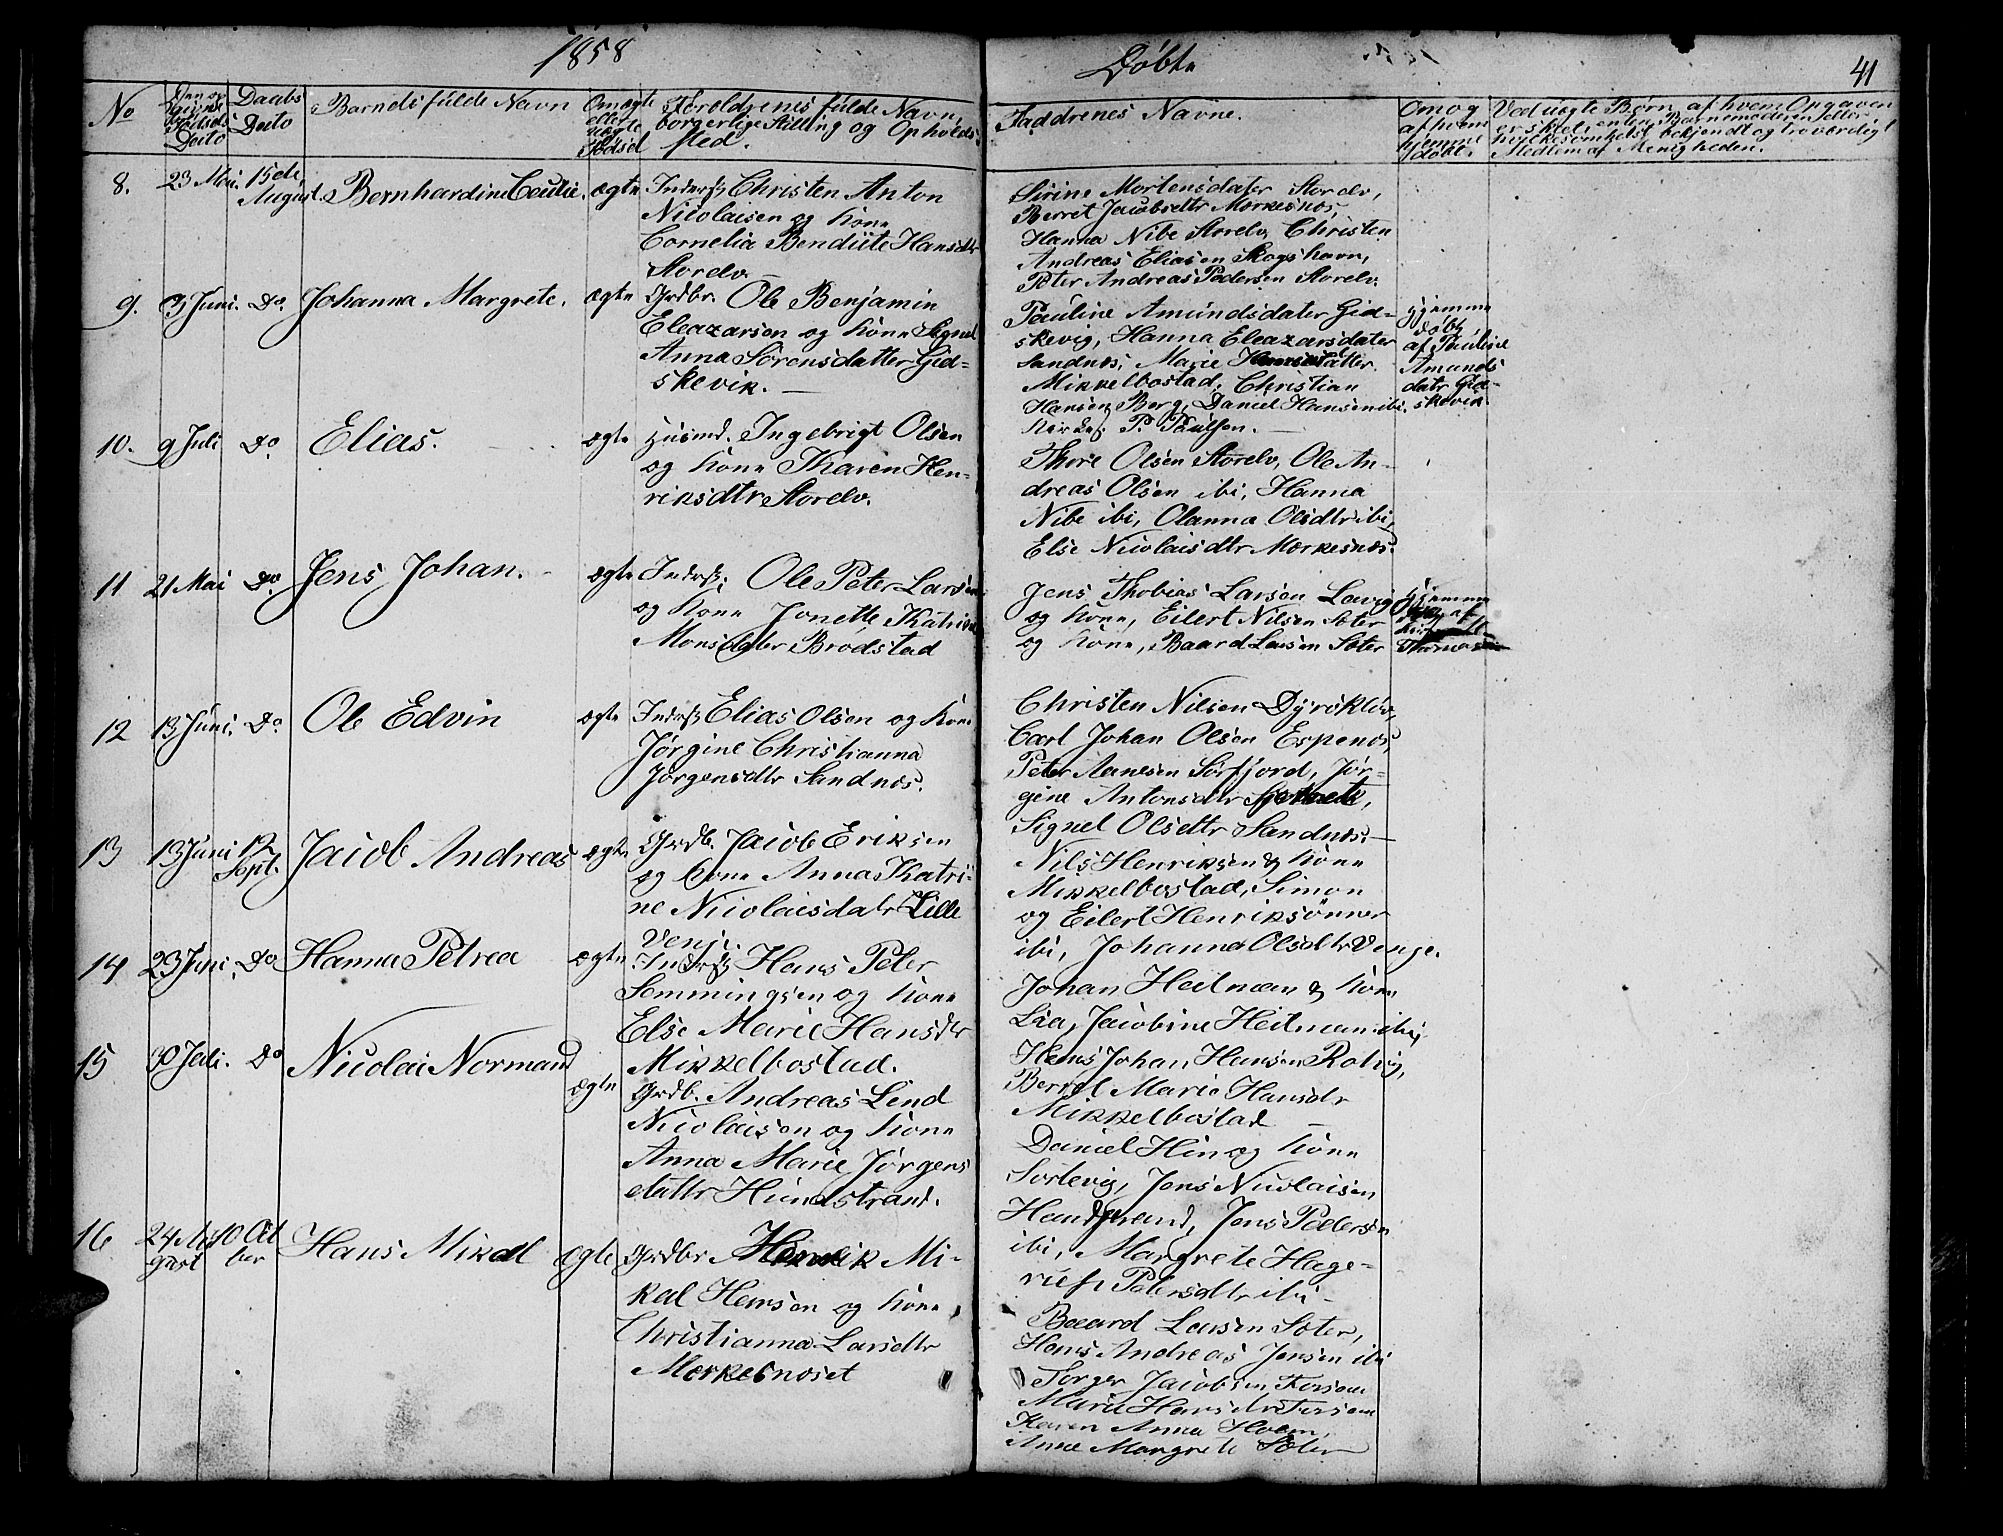 1858
Døbte
41
No
Daabs Dato
Barnets fulde Navn
Om ægte eller uægte Fødsel
Forældrenes fulde Navn, borgerlige Stilling og Opholds Sted.
Faddrenes Navne.
Om og af hvem hjemme døbt.
Ved uægte Børn, af hvem Opgaven er skeet, enten Barnemoderen eller
bekjendt og troværdigt
Medlem af Menigheden.
8.
23 Mai.
15de August.
Bernhardine Cecilie.
ægte
Inderst Christen Anton
Nicolaisen og Kone
Cornelia Bendiite Hansdtr
Storelv. —
Sirine Mortensdater Storelv,
Berret Jacobsdtr Mærkesnæs,
Hanna Nibe Storelv, Christen
Andreas Eliasen Skogshavn,
Peter Andreas Pedersen Storelv.
9.
3 Juni.
Do.
Johanna Margrete.
ægte
Grdbr. Ole Benjamin
Eleazarsen og Kone Signel
Anna Sørensdatter Gid-
skevik. —
Pauline Amundsdater Gid-
skevig, Hanna Eleazarsdater
Sandnæs, Marie
Mikkelbostad, Christian
Hansen Berg, Daniel Hansen ibi.
P. Paulsen. —
Hjemme
døbt
af Pauline
Amunds
datr Gid-
skevik.
10.
9 Juli
Do
Elias.
ægte
Husmd. Ingebrigt Olsen
og Kone Karen Hen-
riksdtr Storelv.
Thore Olsen Storelv, Ole An-
dreas Olsen ibi, Hanna
Nibe ibi, Olanna Olsdtr ibi,
Else Nicolaisdtr Mærkesnæs.
11
21 Mai
Do.
Jens Johan.
ægte
Inderst; Ole Peter Larsen
og Kone Jonette Katrine
Monsdater Brødstad
Jens Thobias Larsen Lavig
og Kone, Eilert Nilsen Sæter
og Kone, Baard Larsen Sæter
Hjemme
af
12
13 Juni.
Do
Ole Edvin
ægte
Inderst Elias Olsen og Kone
Jørgine Christianna
Jørgensdtr Sandnæs.
Christen Nilsen Dyrøkløv,
Carl Johan Olsen Espenæs,
Peter Aanesen Sørfjord, Jør-
gine Antonsdtr
Signel Olsdtr Sandnæs. —
13
13 Juni
12 Sept.
Jacob Andreas
ægte
Grdb. Jacob Eriksen
og Kone Anna Katri-
ne Nicolaisdatr Lille
Venje.
Nils Henriksen & Kone
Mikkelbostad, Simon
og Eilert Henriksønner
ibi, Johanna Olsdtr Venge.
14
23 Juni.
Do
Hanna Petrea
ægte
Inderst Hans Peter
Semmingsen og Kone
Else Marie Hansdtr
Mikkelbostad.
Johan Heitman & Kone
Lia, Jacobine Heitman ibi,
Hans Johan Hansen Rotvig,
Berret Marie Hansdr
Mikkelbostad —
15
30 Juli.
Do
Nicolai Normand
ægte
Grdb. Andreas Lind
Nicolaisen og Kone
Anna Marie Jørgens
dattr Hundstrand.
Daniel Hin og Kone
Sørlevig, Jens Nicolaisen
Hundstrand, Jens Pedersen
ibi, Margrete Hage-
rust Petersdtr ibi —
16
24 August
10 Octber
Hans Mikal
ægte
Grdbr Henrik Mi-
kal Hansen og Kone
Christianna Larsdtr
Mærkesnæset
Baard Larsen Sæter,
Hans Andreas Jensen ibi
Torger Jacobsen
Marie Hansdtr
Karen Anna
Anne Margrete Sæter